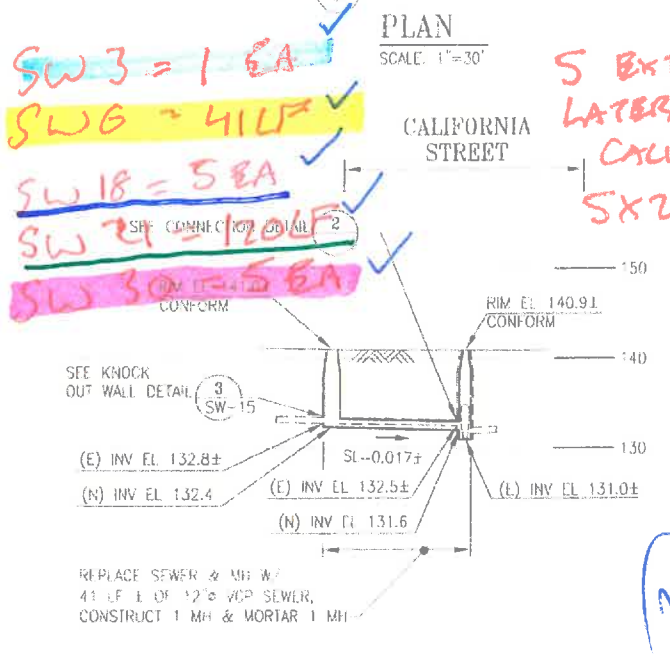 PLAN
SCALE 1"=30'
SW 3 = 1 EA
SW 6 - 41 LF
SW 18 = 5 EA
SW 21 = 120 LF
SW 30 = 5 EA
5 EXT
LATER
CALI
5X2
CALIFORNIA
STREET
SEE CONNECTION DETAIL 2
RIM EL
CONFORM
RIM EL 140.9±
CONFORM
150
140
130
SEE KNOCK
OUT WALL DETAIL 3
SW-15
(E) INV EL 132.8±
(N) INV EL 132.4
SL=0.017±
(E) INV EL 132.5±
(N) INV EL 131.6
(E) INV EL 131.0±
REPLACE SEWER & MH W/
41 LF ± OF 12"ø VCP SEWER,
CONSTRUCT 1 MH & MORTAR 1 MH